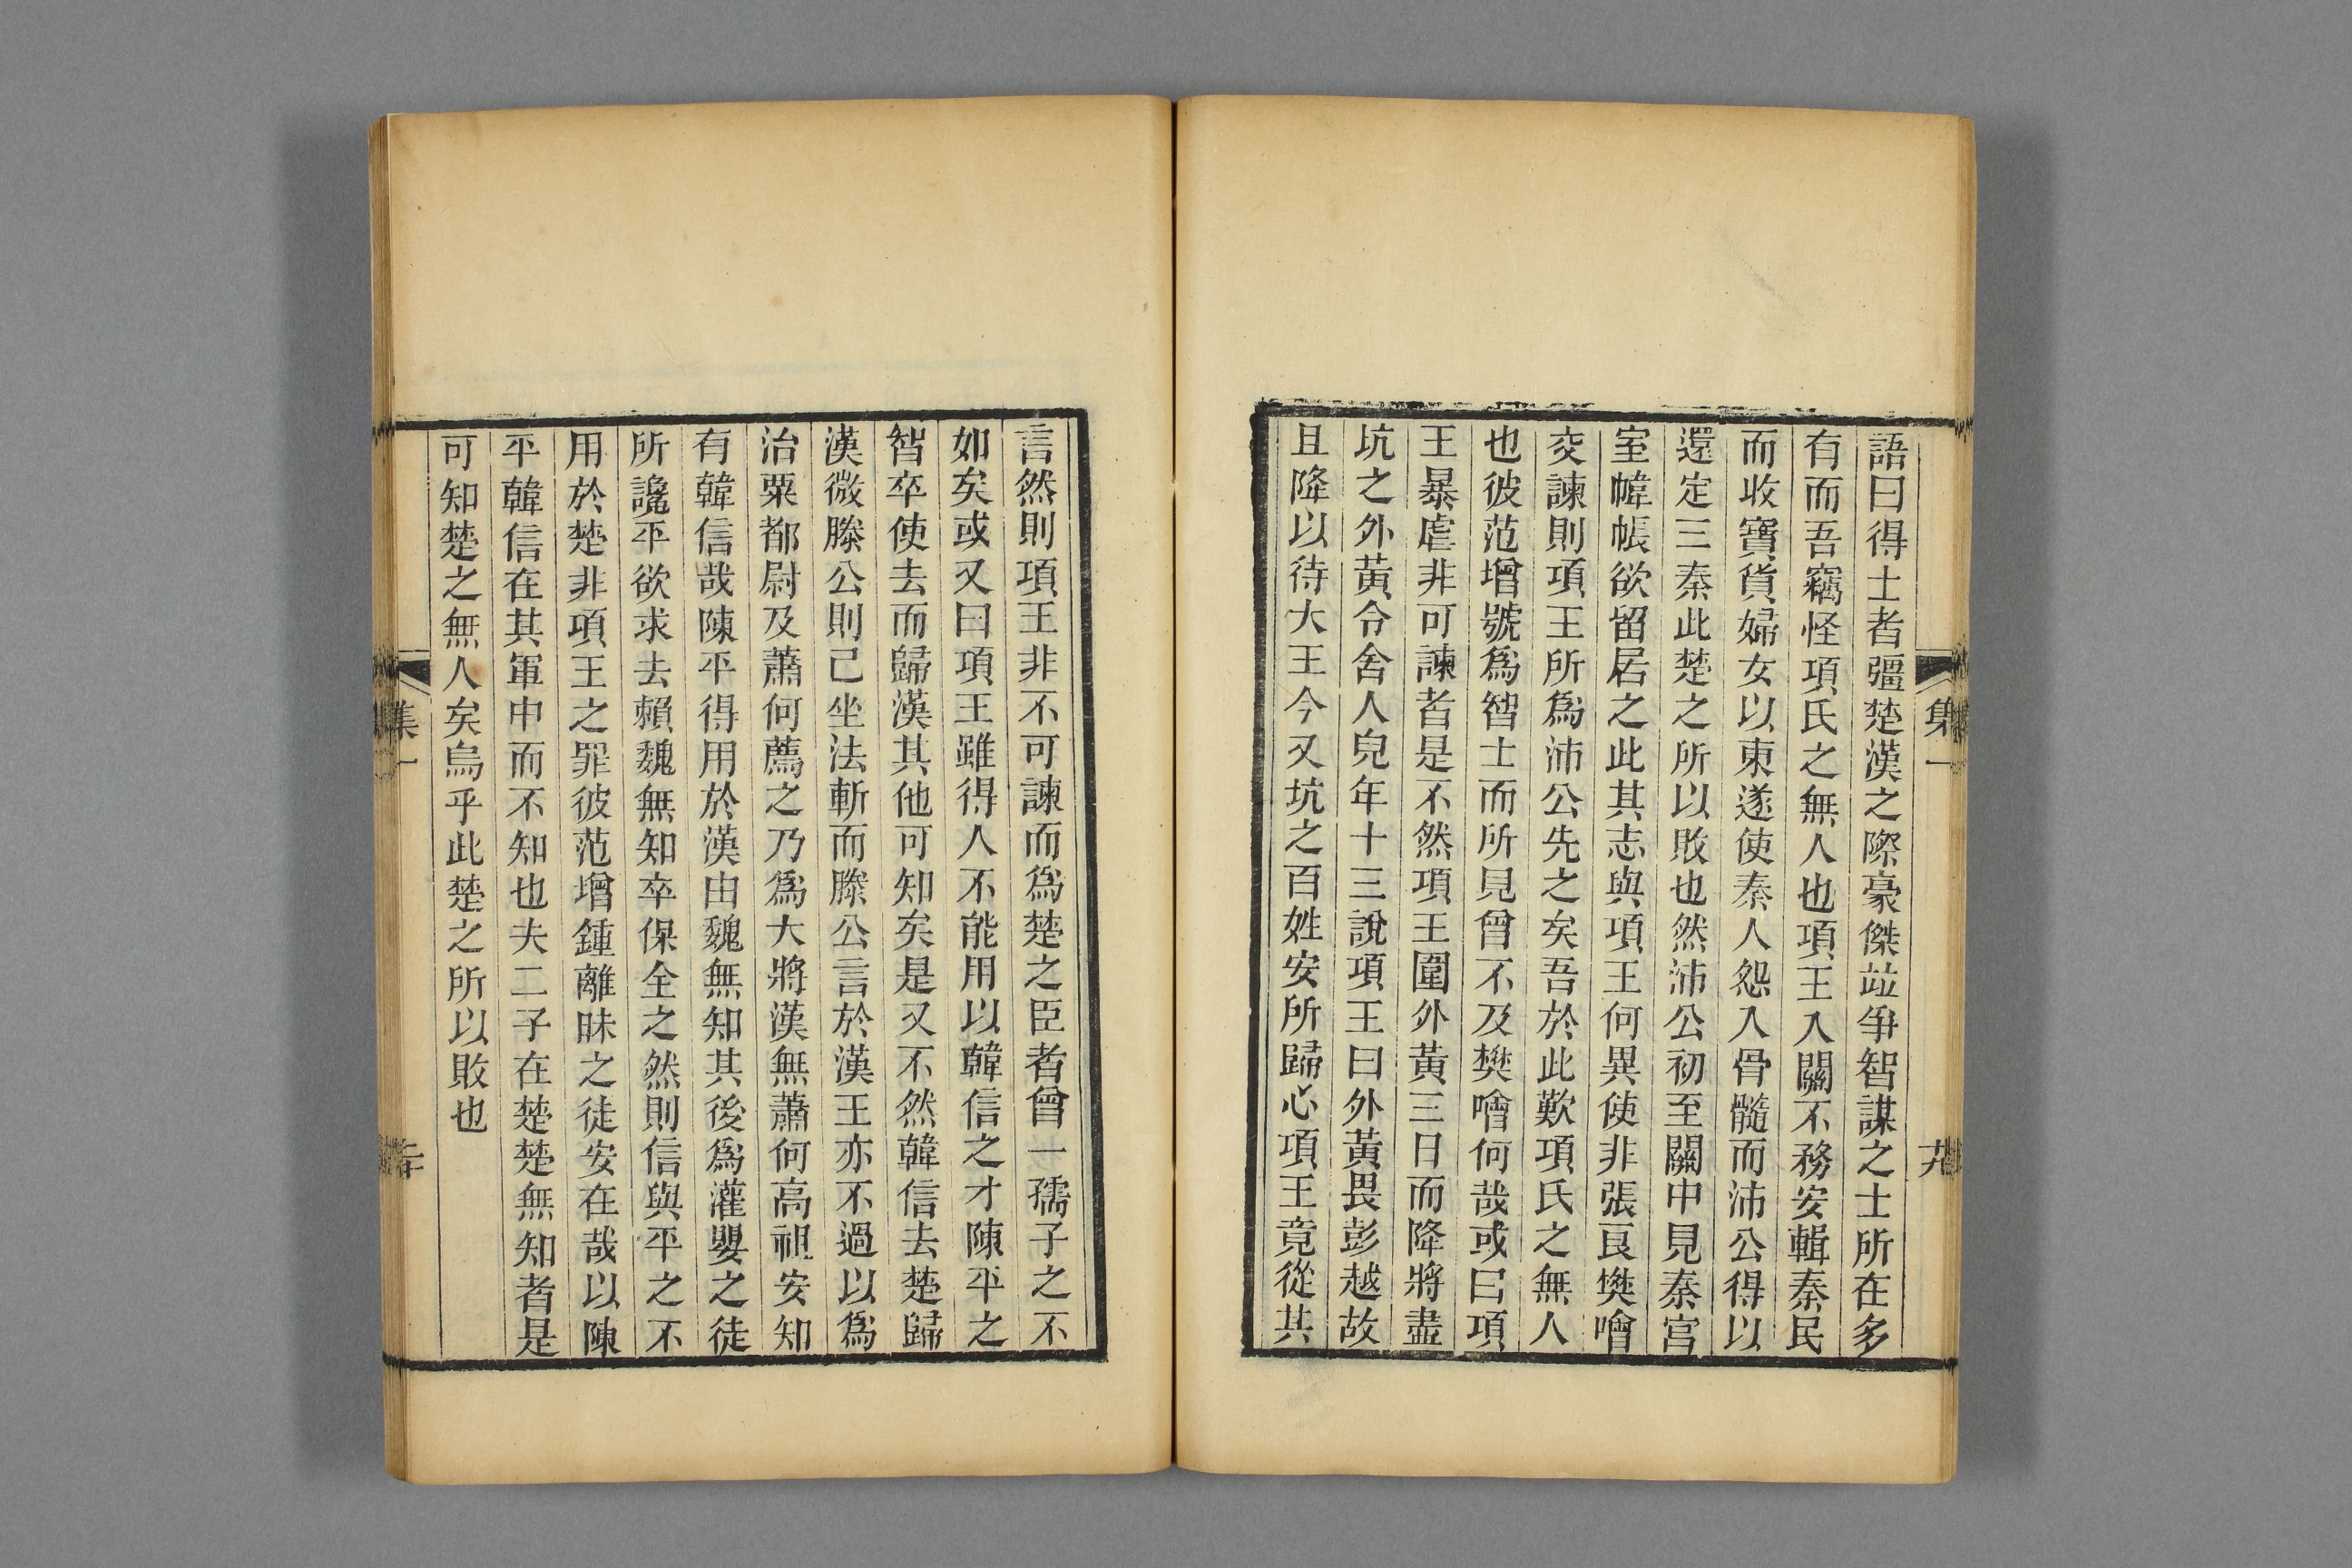 集一
九
語曰得士者彊楚漢之際豪傑竝爭智謀之士所在多
有而吾竊怪項氏之無人也項王入關不務安輯秦民
而收寶貨婦女以東遂使秦人怨入骨髓而沛公得以
還定三秦此楚之所以敗也然沛公初至關中見秦宮
室幃帳欲留居之此其志與項王何異使非張良樊噲
交諫則項王所為沛公先之矣吾於此歎項氏之無人
也彼范增號為智士而所見曾不及樊噲何哉或曰項
王暴虐非可諫者是不然項王圍外黃三日而降將盡
坑之外黃令舍人兒年十三說項王曰外黃畏彭越故
且降以待大王今又坑之百姓安所歸心項王竟從其
言然則項王非不可諫而為楚之臣者曾一孺子之不
如矣或又曰項王雖得人不能用以韓信之才陳平之
智卒使去而歸漢其他可知矣是又不然韓信去楚歸
漢微滕公則已坐法斬而滕公言於漢王亦不過以為
治粟都尉及蕭何薦之乃為大將漢無蕭何高祖安知
有韓信哉陳平得用於漢由魏無知其後為灌嬰之徒
所讒平欲求去賴魏無知卒保全之然則信與平之不
用於楚非項王之罪彼范增鍾離昧之徒安在哉以陳
平韓信在其軍中而不知也夫二子在楚楚無知者是
可知楚之無人矣烏乎此楚之所以敗也
集一